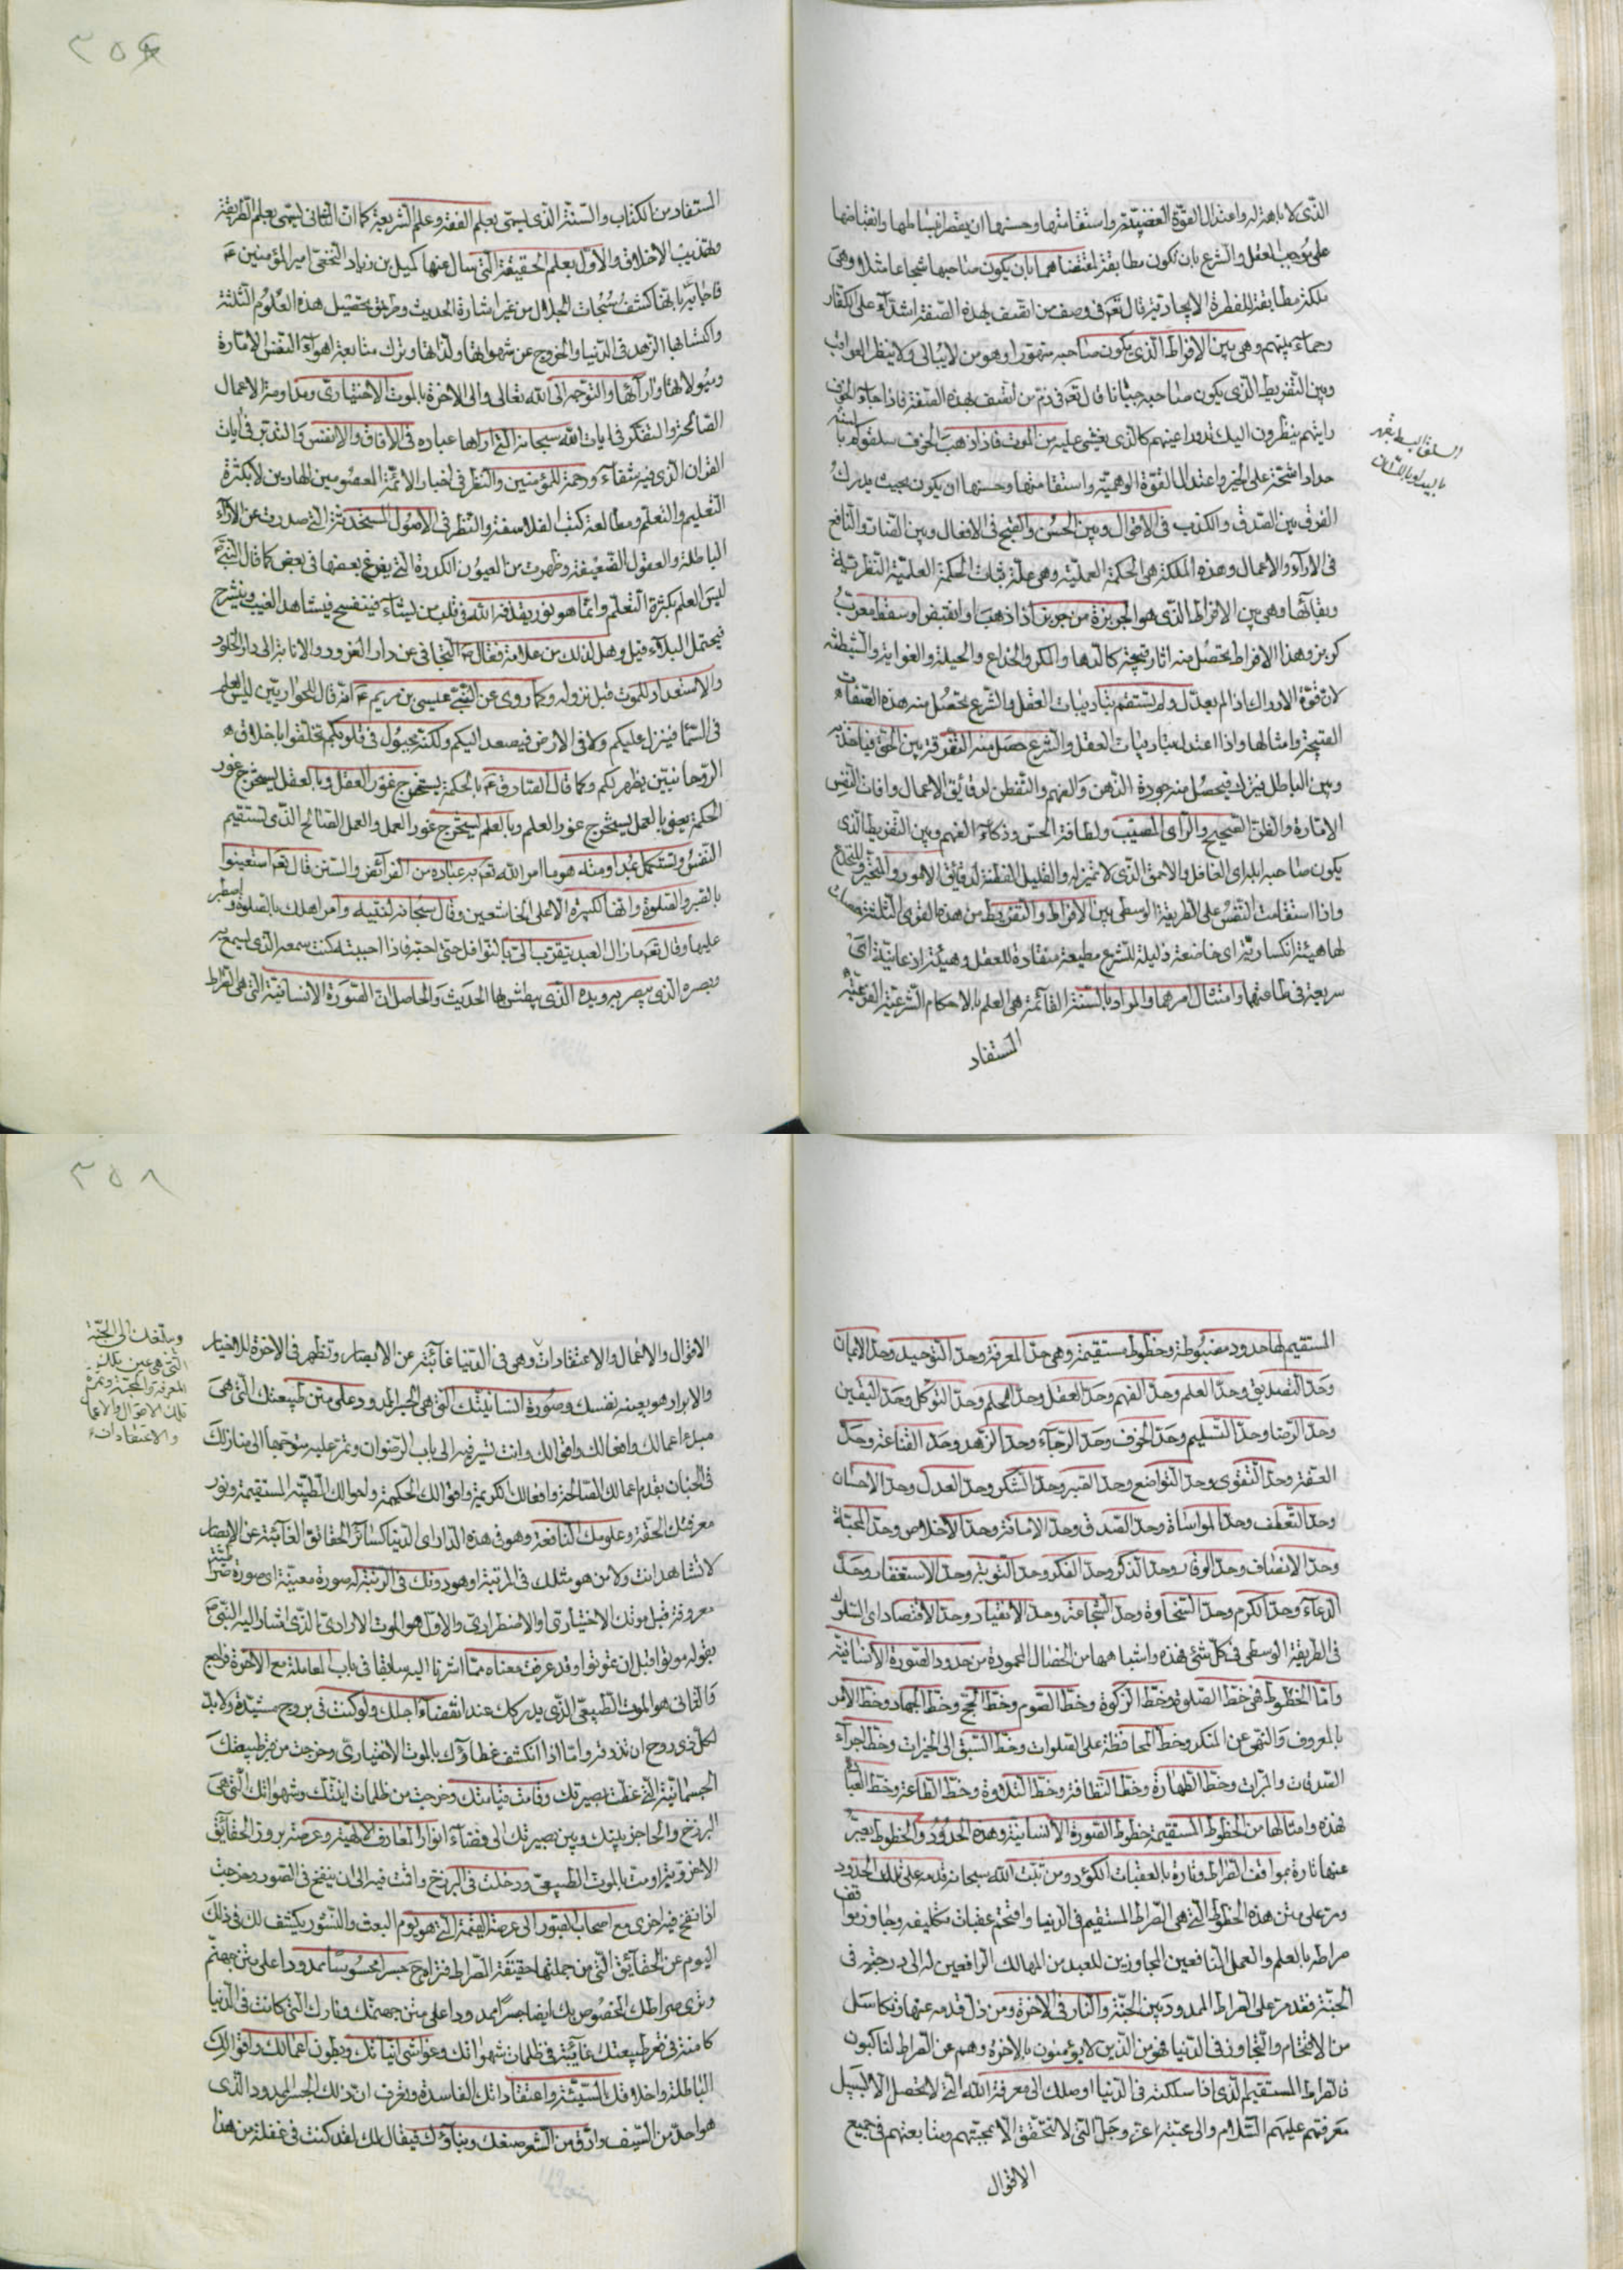 الذى لا باهة له واعتدال القوة الغضبية واستقامتها وحسنها ان يقصر انبساطها وانقباضها
على موجب العقل والشرع بان تكون مطابقة لمقتضاهما بان يكون صاحبها شجاعا مثلا وهى
ملكة مطابقة للفطرة الايجادية قال تعم فى وصف من اتصف بهذه الصفة اشداء على الكفار
رحماء بينهم وهى بين الافراط الذى يكون صاحبه متهورا وهو من لا يبالى ولا ينظر العواقب
وبين التفريط الذى يكون صاحبه جبانا قال تعم فى ذم من اتصف بهذه الصفة فاذا جاء الخوف
رايتهم ينظرون اليك تدور اعينهم كالذى يغشى عليه من الموت فاذا ذهب الخوف سلقوكم بالسنة
حداد اشحة على الخير واعتدال القوة الوهمية واستقامتها وحسنها ان يكون بحيث يدرك
الفرق بين الصدق والكذب فى الاقوال وبين الحسن والقبح فى الافعال وبين الضار والنافع
فى الآراء والاعمال وهذه الملكة هى الحكمة العملية وهى علة ثبات الحكمة العلمية النظرية
وبقائها وهى بين الافراط الذى هو الجربزة من جربز اذا ذهب او انقبض او سقط معرب
كربز وهذا الافراط يحصل منه اثار قبيحة كالدها والمكر والخداع والحيلة والغواية والشيطنة
لان قوة الادراك اذا لم يعدل ولم يستقم بتاديبات العقل والشرع تحصل منه هذه الصفات
القبيحة وامثالها واذا اعتدلت بتاديبات العقل والشرع حصل منه التفرقة بين الحق فياخذه
وبين الباطل فيتركه فيحصل منه جودة الذهن والفهم والتفطن لدقائق الاعمال وافات النفس
الامارة والظن الصحيح والراى المصيب ولطافة الحس وذكاء الفهم وبين التفريط الذى
يكون صاحبه ابله اى الغافل والاحمق الذى لا تميز له والقليل الفطنة لدقائق الامور والمتحير
واذا استقامت النفس على الطريقة الوسطى بين الافراط والتفريط من هذه القوى الثلثة حصلت
لها هيئة انكسارية اى خاضعة ذليلة للشرع مطيعة منقادة للعقل وهيئة اذعانية اى
سريعة فى طاعتهما وامتثال امرهما والمراد بالسنة القائمة هى العلم بالاحكام الشرعية الفرعية
المستفاد
السلق البسط بقهر
باليد او باللسان
٣٥٤
المستفاد من الكتاب والسنة الذى يسمى بعلم الفقه وعلم الشريعة كما ان الثانى يسمى بعلم الطريقة
وتهذيب الاخلاق والاول بعلم الحقيقة التى سال عنها كميل بن زياد النخعى امير المؤمنين ع
فاجابه بانها كشف سبحات الجلال من غير اشارة الحديث وطريق تحصيل هذه العلوم الثلثة
واكتسابها الزهد فى الدنيا والخروج عن شهواتها ولذاتها وترك متابعة اهواء النفس الامارة
وميولاتها وارآئها والتوجه الى الله تعالى والى الاخرة بالموت الاختيارى ومداومة الاعمال
الصالحة والتفكر فى ايات الله سبحانه التى اراها عباده فى الآفاق والانفس والتدبر فى ايات
القران الذى فيه شفاء ورحمة للمؤمنين والنظر فى اخبار الائمة المعصومين الهادين لا بكثرة
التعليم والتعلم ومطالعة كتب الفلاسفة والنظر فى الاصول المستحدثة التى صدرت عن الآراء
الباطلة والعقول الضعيفة وظهرت من العيون الكدرة التى يفرغ بعضها فى بعض كما قال النبى ص
ليس العلم بكثرة التعلم وانما هو نور يقذفه الله فى قلب من يشاء فينفسح فيشاهد الغيب وينشرح
فيحتمل البلاء قيل وهل لذلك من علامة فقال ص التجافى عن دار الغرور والانابة الى دار الخلود
والاستعداد للموت قبل نزوله وكما روى عن النبى عيسى بن مريم ع انه قال للحواريين ليس العلم
فى السماء فينزل عليكم ولا فى الارض فيصعد اليكم ولكنه مجبول فى قلوبكم تخلقوا باخلاق
الروحانيين يظهر لكم وكما قال الصادق ع بالحكمة يستخرج غور العقل وبالعقل يستخرج غور
الحكمة يعنى بالعمل يستخرج غور العلم وبالعلم يستخرج غور العمل والعمل الصالح الذى تستقيم
النفس وتستكمل به هو ما امر الله تعم به عباده من الفرائض والسنن قال تعم استعينوا
بالصبر والصلوة وانها لكبيرة الا على الخاشعين وقال سبحانه لنبيه وامر اهلك بالصلوة واصطبر
عليها وقال تعم ما زال العبد يتقرب الى بالنوافل حتى احبه فاذا احببته كنت سمعه الذى يسمع به
وبصره الذى يبصر به ويده الذى يبطش بها الحديث والحاصل ان الصورة الانسانية التى هى الصراط
المستقيم لها حدود مضبوطة وخطوط مستقيمة وهى حد المعرفة وحد التوحيد وحد الايمان
وحد التصديق وحد العلم وحد الفهم وحد العقل وحد الحلم وحد التوكل وحد اليقين
وحد الرضا وحد التسليم وحد الخوف وحد الرجاء وحد الزهد وحد القناعة وحد
العفة وحد التقوى وحد التواضع وحد الصبر وحد الشكر وحد العدل وحد الاحسان
وحد التعطف وحد المواساة وحد الصدق وحد الامانة وحد الاخلاص وحد المحبة
وحد الانصاف وحد الوقار وحد الذكر وحد الفكر وحد التوبة وحد الاستغفار وحد
الدعاء وحد الكرم وحد السخاوة وحد الشجاعة وحد الانقياد وحد الاقتصاد اى السلوك
فى الطريقة الوسطى فى كل شئ فهذه واشباهها من الخصال المحمودة من حدود الصورة الانسانية
واما الخطوط فهى خط الصلوة وخط الزكوة وخط الصوم وخط الحج وخط الجهاد وخط الامر
بالمعروف والنهى عن المنكر وخط المحافظة على الصلوات وخط السبق الى الخيرات وخط اجراء
الصدقات والمبرات وخط الطهارة وخط النظافة وخط التلاوة وخط الطاعة وخط العبادة
فهذه وامثالها من الخطوط المستقيمة خطوط الصورة الانسانية وهذه الحدود والخطوط يعبر
عنها تارة بمواقف الصراط وتارة بالعقبات الكؤد ومن ثبت الله سبحانه قدمه على تلك الحدود
ومر على متن هذه الخطوط التى هى الصراط المستقيم فى الدنيا واقتحم عقبات تكليفه وجاوز مواقف
صراطه بالعلم والعمل النافعين المجاوزين للعبد من المهالك الرافعين له الى درجته فى
الجنة فقد مر على الصراط الممدود بين الجنة والنار فى الاخرة ومن زل قدمه عنها وتكاسل
من الاقتحام والتجاوز فى الدنيا فهو من الذين لا يؤمنون بالاخرة وهم عن الصراط لناكبون
فالصراط المستقيم الذى اذا سلكته فى الدنيا اوصلك الى معرفة الله التى لا تحصل الا بسبيل
معرفتهم عليهم السلام والى محبته عز وجل التى لا تتحقق الا بمحبتهم ومتابعتهم فى جميع
الاقوال
٣٥٨
الاقوال والاعمال والاعتقادات وهى فى الدنيا غائبة عن الابصار وتظهر فى الاخرة للاخيار
والابرار هو بعينه نفسك وصورة انسانيتك التى هى الجسر الممدود على متن طبيعتك التى هى
مبدء اعمالك وافعالك واقوالك وانت تسير فيه الى باب الرضوان وتمر عليه متوجها الى منازلك
فى الجنان بقدم اعمالك الصالحة وافعالك الكريمة واقوالك الحكيمة واحوالك الطيبة المستقيمة ونور
معرفتك الحقة وعلومك النافعة وهو فى هذه الدار اى الدنيا كسائر الحقائق الغائبة عن الابصار
لا تشاهد انت ولا من هو مثلك فى المرتبة او هو دونك فى الرتبة له صورة معينة اى صورة
معروفة قبل موتك الاختيارى او الاضطرارى والاول هو الموت الارادى الذى اشار اليه النبى ص
بقوله موتوا قبل ان تموتوا وقد عرفت معناه مما اشرنا اليه سابقا فى باب المعاملة مع الآخرة فراجع
والثانى هو الموت الطبيعى الذى يدركك عند انقضاء اجلك ولو كنت فى بروج مشيدة ولا بد
لكل ذى روح ان تذوقه واما اذا انكشف غطاؤك بالموت الاختيارى وخرجت من قعر طبيعتك
الجسمانية التى غطت بصيرتك وقامت قيامتك وخرجت من ظلمات انيتك وشهواتك التى هى
البرزخ والحاجز بينك وبين بصيرتك الى فضاء انوار المعارف الالهية وعرصة بروز الحقائق
الاخروية او مت بالموت الطبيعى ودخلت فى البرزخ واقمت فيه الى ان ينفخ فى الصور وخرجت
اذا نفخ فيه اخرى مع اصحاب القبور الى عرصة القيمة التى هو يوم البعث والنشور يكشف لك فى ذلك
اليوم عن الحقائق التى من جملتها حقيقة الصراط فتراه ح جسرا محسوسا ممدودا على متن جهنم
وترى صراطك المخصوص بك ايضا جسرا ممدودا على متن جهنمك ونارك التى كانت فى الدنيا
كامنة فى قعر طبيعتك غائبة فى ظلمات شهواتك وغواشى انياتك وبطون اعمالك واقوالك
الباطلة واخلاقك السيئة واعتقاداتك الفاسدة وتعرف ان ذلك الجسر الممدود الذى
هو احد من السيف وادق من الشعر صنعك وبناؤك فيقال لك لقد كنت فى غفلة من هذا
وسلغت الى الجنة
التى هى عين تلك
المعرفة والمحبة وثمرة
تلك الاقوال والاعمال
والاعتقادات